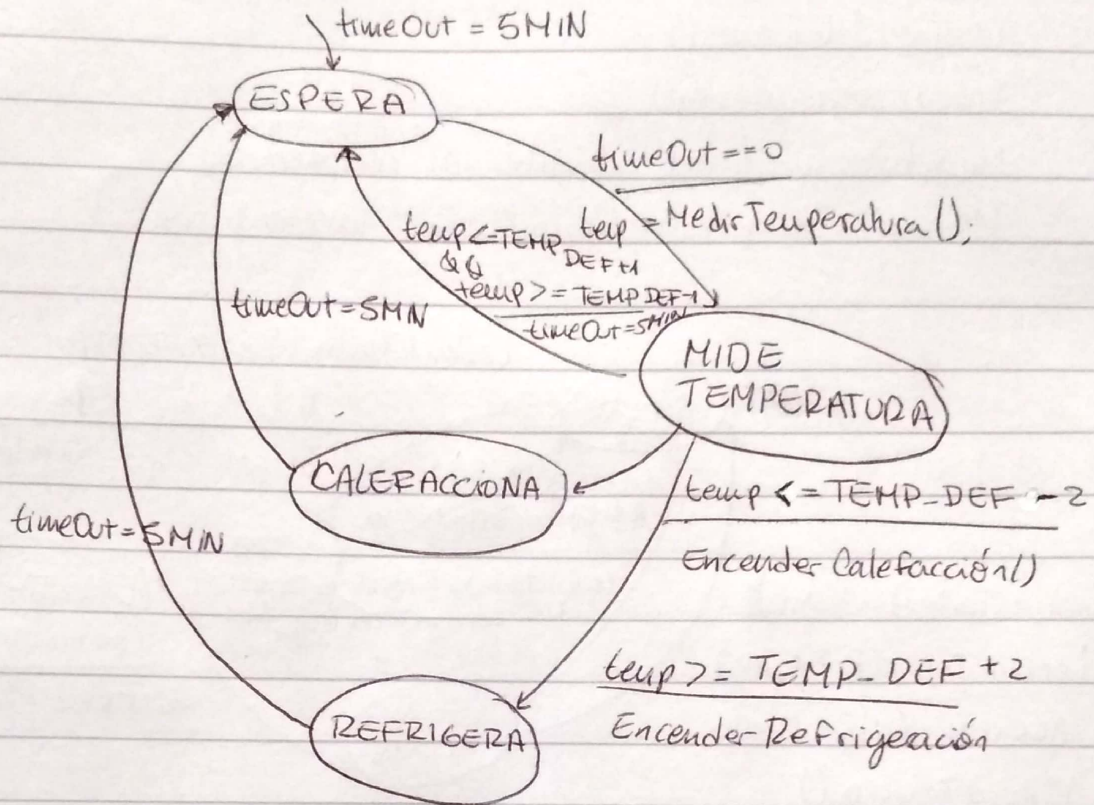 timeOut = 5MIN
ESPERA
timeOut == 0
temp = MedirTemperatura();
temp <= TEMP_DEF+1
&&
temp >= TEMP_DEF-1
timeOut = 5MIN
timeOut = 5MIN
MIDE
TEMPERATURA
CALEFACCIONA
temp <= TEMP_DEF - 2
Encender Calefacción()
timeOut = 5MIN
temp >= TEMP_DEF + 2
Encender Refrigeración
REFRIGERA